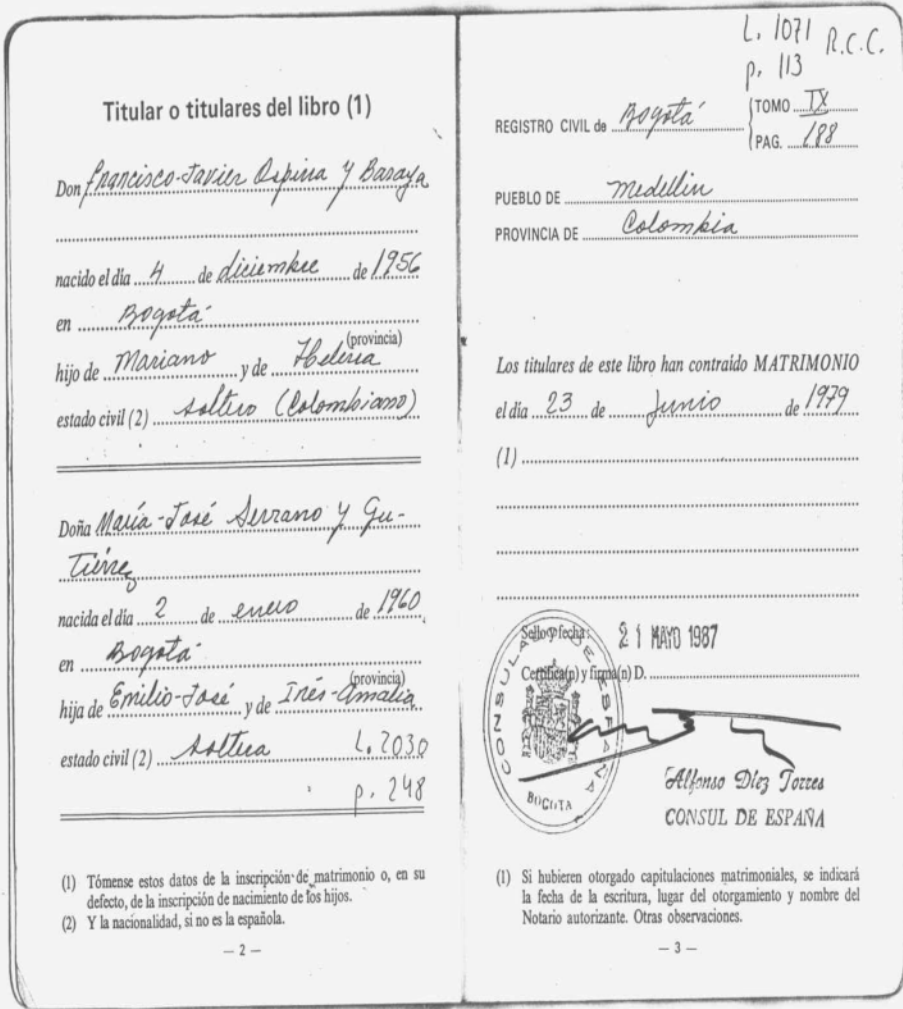 Titular o titulares del libro (1)
Don Francisco-Javier Ospina y Baraya
nacido el día 4 de diciembre de 1956
en Bogotá
(provincia)
hijo de Mariano y de Helena
estado civil (2) soltero (Colombiano)
Doña María-José Serrano y Gu-
tiérrez
nacida el día 2 de enero de 1960
en Bogotá
(provincia)
hija de Emilio-José y de Inés-Amalia
estado civil (2) soltera L. 2030
p. 248
(1) Tómense estos datos de la inscripción de matrimonio o, en su
defecto, de la inscripción de nacimiento de los hijos.
(2) Y la nacionalidad, si no es la española.
— 2 —
L. 1071 R.C.C.
p. 113
REGISTRO CIVIL de Bogotá TOMO IX
PAG. 188
PUEBLO DE Medellin
PROVINCIA DE Colombia
Los titulares de este libro han contraído MATRIMONIO
el día 23 de Junio de 1979
(1)
Sello y fecha: 21 MAYO 1987
Certifica(n) y firma(n) D.
CONSULADO DE ESPAÑA
BOGOTA
Alfonso Díez Torres
CONSUL DE ESPAÑA
(1) Si hubieren otorgado capitulaciones matrimoniales, se indicará
la fecha de la escritura, lugar del otorgamiento y nombre del
Notario autorizante. Otras observaciones.
— 3 —